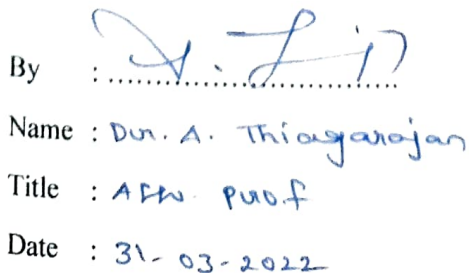 By :
Name : Dr. A. Thiagarajan
Title : Ass. Prof
Date : 31-03-2022